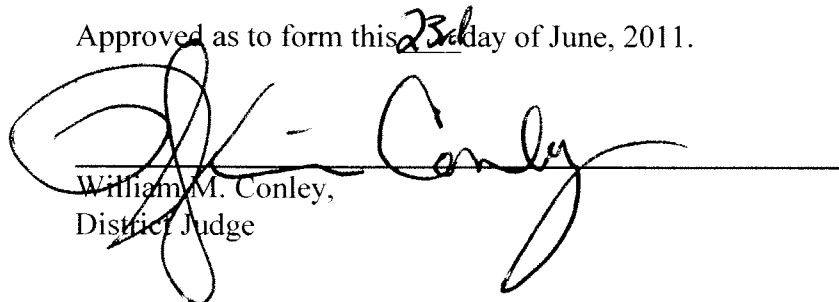 Approved as to form this 23rd day of June, 2011.
William M. Conley,
District Judge